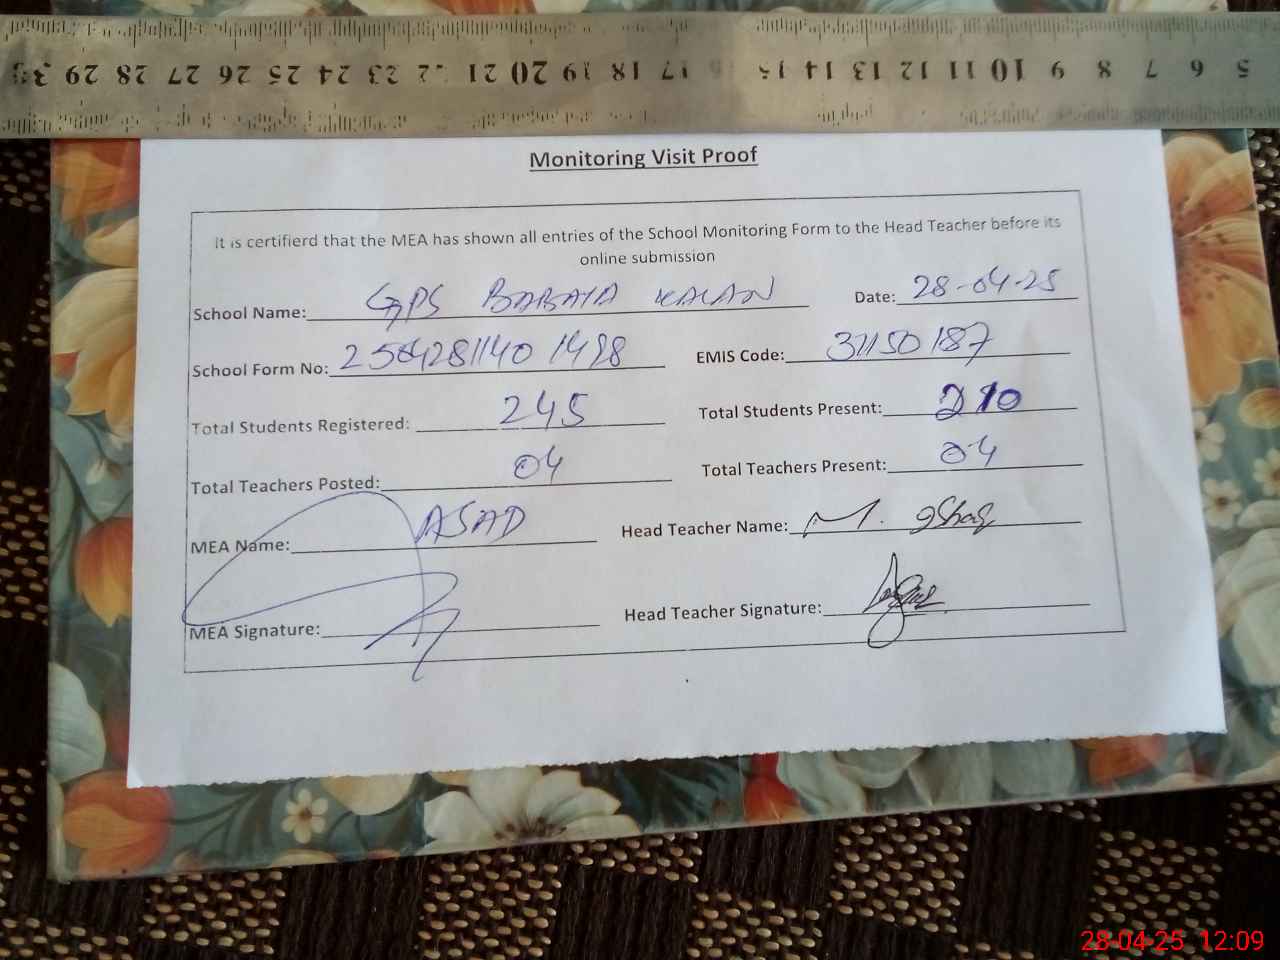 30 29 28 27 26 25 24 23 22 21 20 19 18 17 15 14 13 12 11 10 9 8 7 6 5
Monitoring Visit Proof
It is certifierd that the MEA has shown all entries of the School Monitoring Form to the Head Teacher before its
online submission
School Name: GPS BABAYA KALAN Date: 28-04-25
School Form No: 25042811401498 EMIS Code: 31150187
Total Students Registered: 245 Total Students Present: 210
Total Teachers Posted: 04 Total Teachers Present: 04
MEA Name: ASAD Head Teacher Name: M. Ishaq
MEA Signature: Head Teacher Signature:
28-04-25 12:09